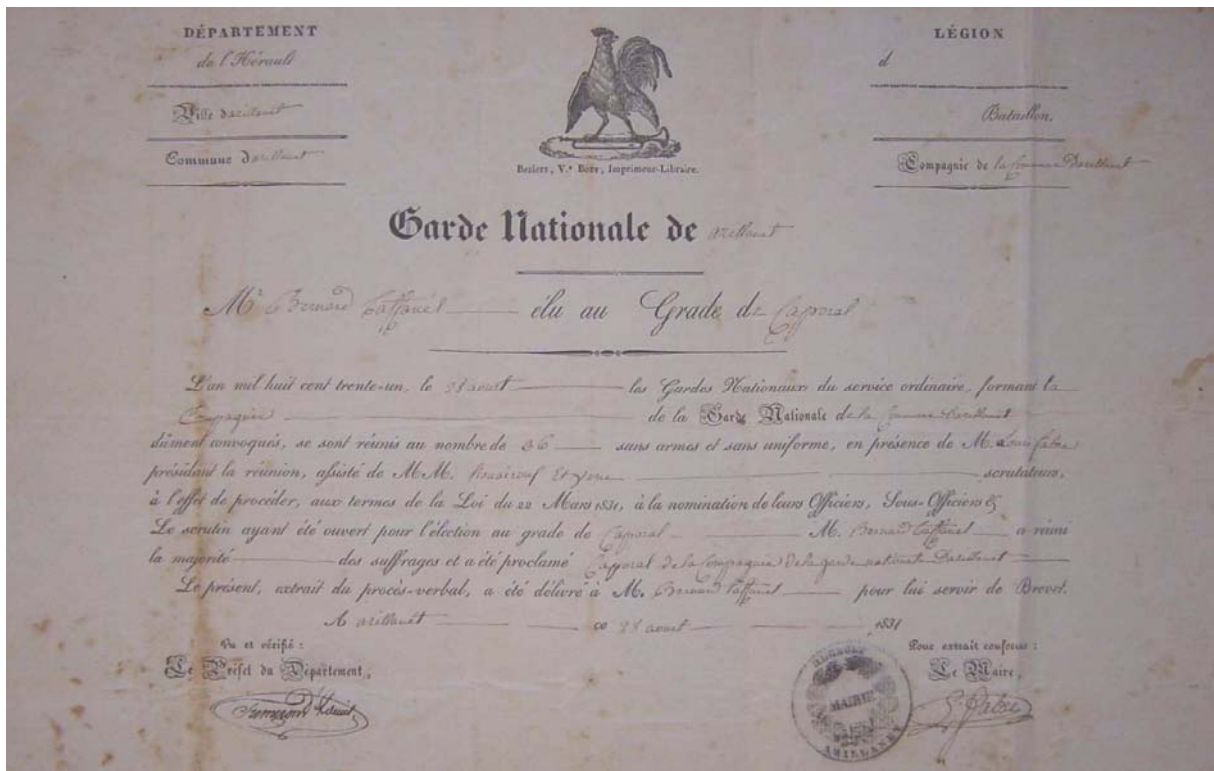 DÉPARTEMENT
de l'Hérault
Ville d'azillanet
Commune d'azillanet
Beziers, V.e Bory, Imprimeur-Libraire.
LÉGION
d
Bataillon,
Compagnie de la Commune Dazillanet
Garde Nationale de azillanet
Mr Bernard Taffanel élu au Grade de Caporal
L'an mil huit cent trente-un, le 28 aout les Gardes Nationaux du service ordinaire, formant la
Compagnie de la Garde Nationale de la Commune Dazillanet
dûment convoqués, se sont réunis au nombre de 36 sans armes et sans uniforme, en présence de M. Louis Fabre
présidant la réunion, assisté de MM. et scrutateurs,
à l'effet de procéder, aux termes de la Loi du 22 Mars 1831, à la nomination de leurs Officiers, Sous-Officiers &
Le scrutin ayant été ouvert pour l'élection au grade de Caporal M. Bernard Taffanel a réuni
la majorité des suffrages et a été proclamé Capporal de la Compagnie de la garde nationale Dazillanet
Le présent, extrait du procès-verbal, a été délivré à M. Bernard Taffanel pour lui servir de Brevet.
A azillanet ce 28 aout 1831
Vu et vérifié :
Le Préfet du Département,
Pour extrait conforme :
Le Maire,
L. Fabre
HERAULT
MAIRIE
AZILLANET